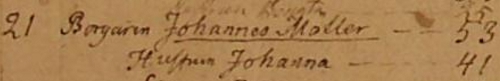 21 Borgaren Johannes Möller — 53
Hustrun Johanna — 41